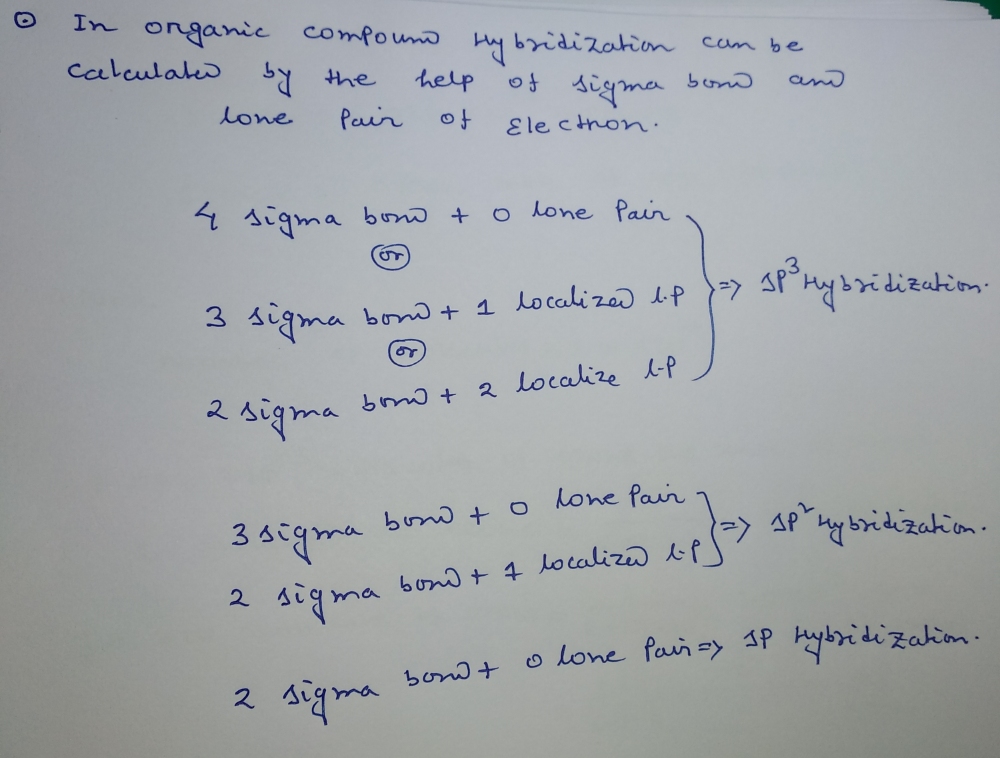 ⊙ In organic compound Hybridization can be
calculated by the help of sigma bond and
lone Pair of Electron.
4 sigma bond + 0 lone Pair
or
3 sigma bond + 1 localized l.P
or
2 sigma bond + 2 localize l-P
=> SP³ Hybridization.
3 sigma bond + 0 lone Pair
2 sigma bond + 1 localized l.P
=> SP² Hybridization.
2 sigma bond + 0 lone Pair => SP Hybridization.